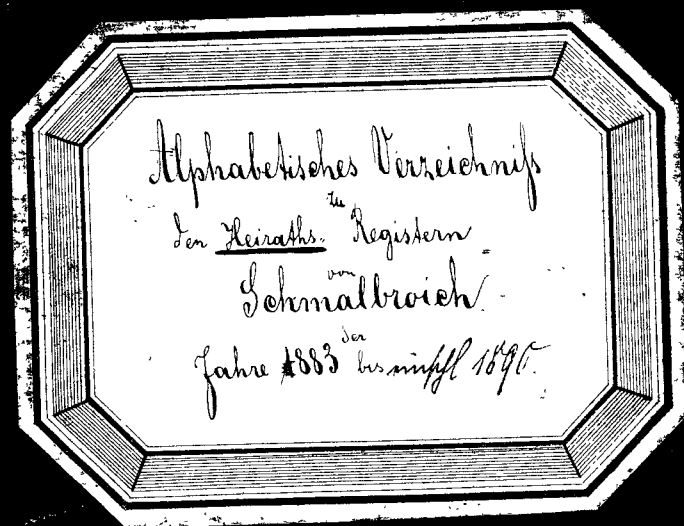 Alphabetisches Verzeichniß
zu
den Heiraths-Registern
von
Schmalbroich
der
Jahre 1883 bis einschl 1890.